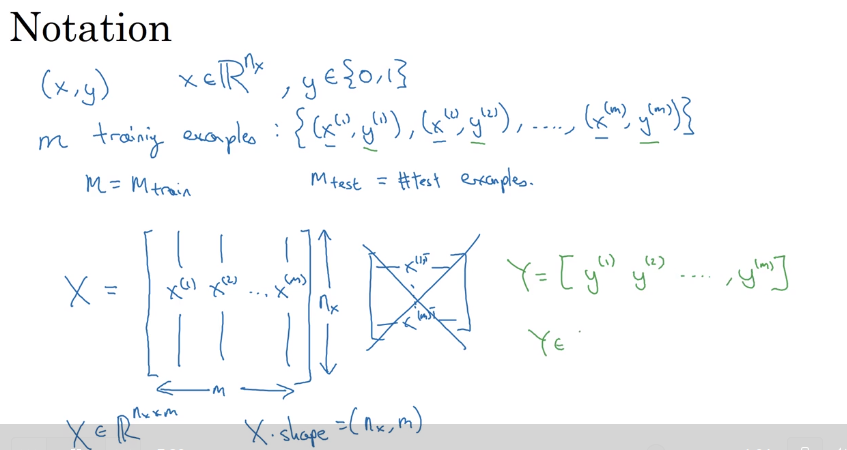 Notation
(x, y) x ∈ ℝ^{n_x}, y ∈ {0,1}
m training examples : {(x^{(1)}, y^{(1)}), (x^{(2)}, y^{(2)}), ...., (x^{(m)}, y^{(m)})}
M = M_{train} M_{test} = #test examples.
X = [ x^{(1)} x^{(2)} ... x^{(m)} ] n_x
m
x^{(1)T}
x^{(m)T}
Y = [ y^{(1)} y^{(2)} .... , y^{(m)} ]
Y ∈
X ∈ ℝ^{n_x × m} X.shape = (n_x, m)